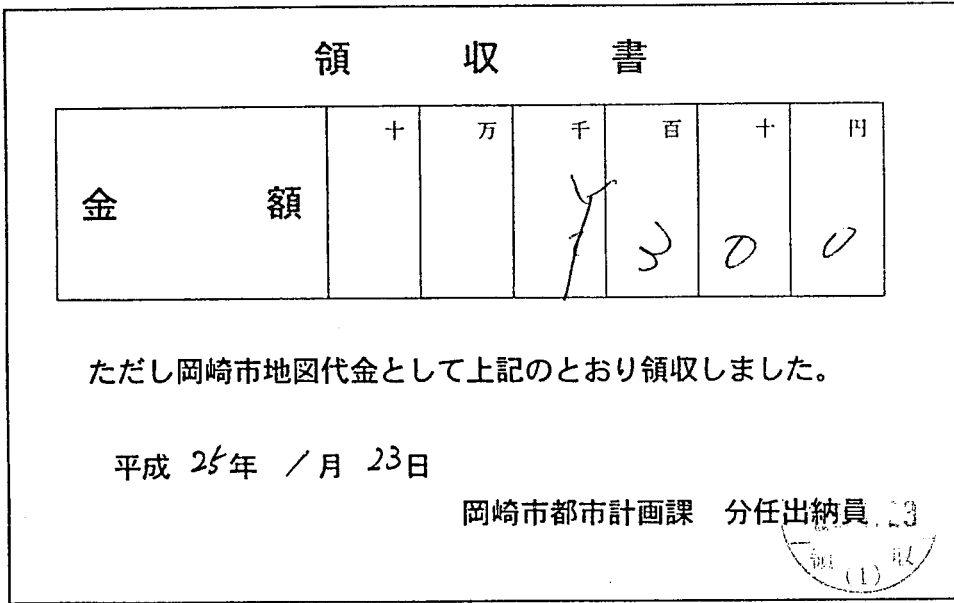 領収書
十 万 千 百 十 円
金額 ¥ 3 0 0
ただし岡崎市地図代金として上記のとおり領収しました。
平成 25年 1月 23日
岡崎市都市計画課 分任出納員
23
領収
(1)